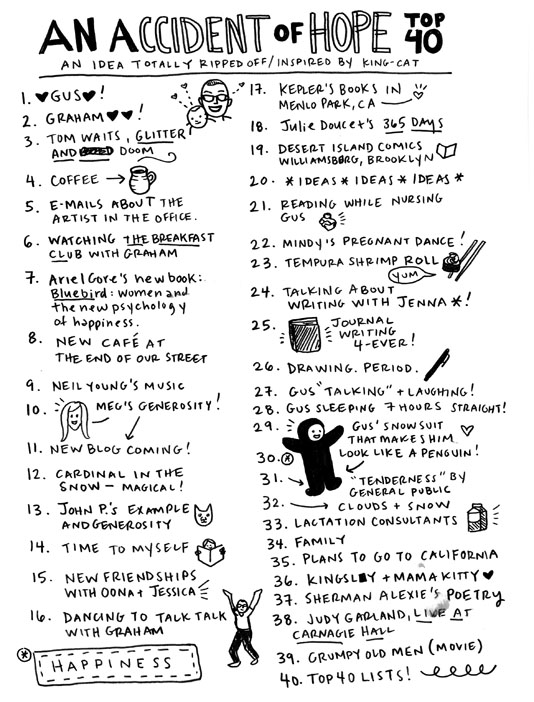 AN ACCIDENT OF HOPE TOP 40
AN IDEA TOTALLY RIPPED OFF/INSPIRED BY KING-CAT
1. ♥GUS♥!
2. GRAHAM♥♥!
3. TOM WAITS, GLITTER
AND DOOM
4. COFFEE →
5. E-MAILS ABOUT THE
ARTIST IN THE OFFICE.
6. WATCHING THE BREAKFAST
CLUB WITH GRAHAM
7. Ariel Gore's new book:
Bluebird: women and
the new psychology
of happiness.
8. NEW CAFÉ AT
THE END OF OUR STREET
9. NEIL YOUNG'S MUSIC
10. MEG'S GENEROSITY!
11. NEW BLOG COMING!
12. CARDINAL IN THE
SNOW – MAGICAL!
13. JOHN P.'S EXAMPLE
AND GENEROSITY
14. TIME TO MYSELF
15. NEW FRIENDSHIPS
WITH OONA + JESSICA
16. DANCING TO TALK TALK
WITH GRAHAM
* HAPPINESS
17. KEPLER'S BOOKS IN
MENLO PARK, CA
18. Julie Doucet's 365 DAYS
19. DESERT ISLAND COMICS
WILLIAMSBERG, BROOKLYN
20. *IDEAS*IDEAS*IDEAS*
21. READING WHILE NURSING
GUS
22. MINDY'S PREGNANT DANCE!
23. TEMPURA SHRIMP ROLL
YUM
24. TALKING ABOUT
WRITING WITH JENNA*!
25. JOURNAL
WRITING
4-EVER!
26. DRAWING. PERIOD.
27. GUS "TALKING" + LAUGHING!
28. GUS SLEEPING 7 HOURS STRAIGHT!
29. GUS' SNOWSUIT
THAT MAKES HIM
LOOK LIKE A PENGUIN!
30. *
31. "TENDERNESS" BY
GENERAL PUBLIC
32. CLOUDS + SNOW
33. LACTATION CONSULTANTS
34. FAMILY
35. PLANS TO GO TO CALIFORNIA
36. KINGSLEY + MAMA KITTY ♥
37. SHERMAN ALEXIE'S POETRY
38. JUDY GARLAND, LIVE AT
CARNAGIE HALL
39. GRUMPY OLD MEN (MOVIE)
40. TOP 40 LISTS!